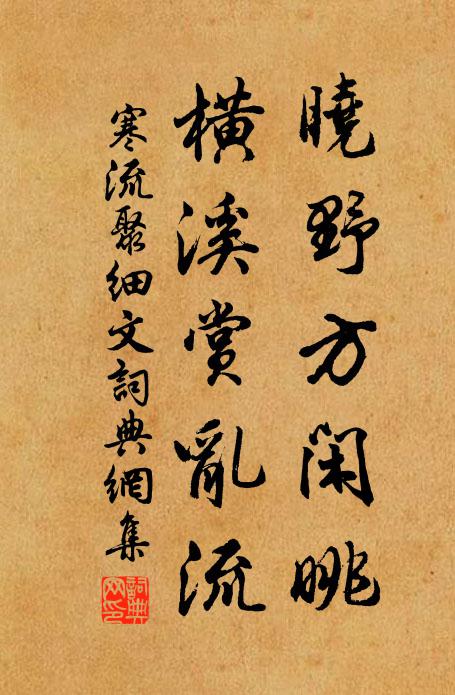 曉野方閑眺
橫溪賞亂流
寒流聚细文詞典網集
詞典网印